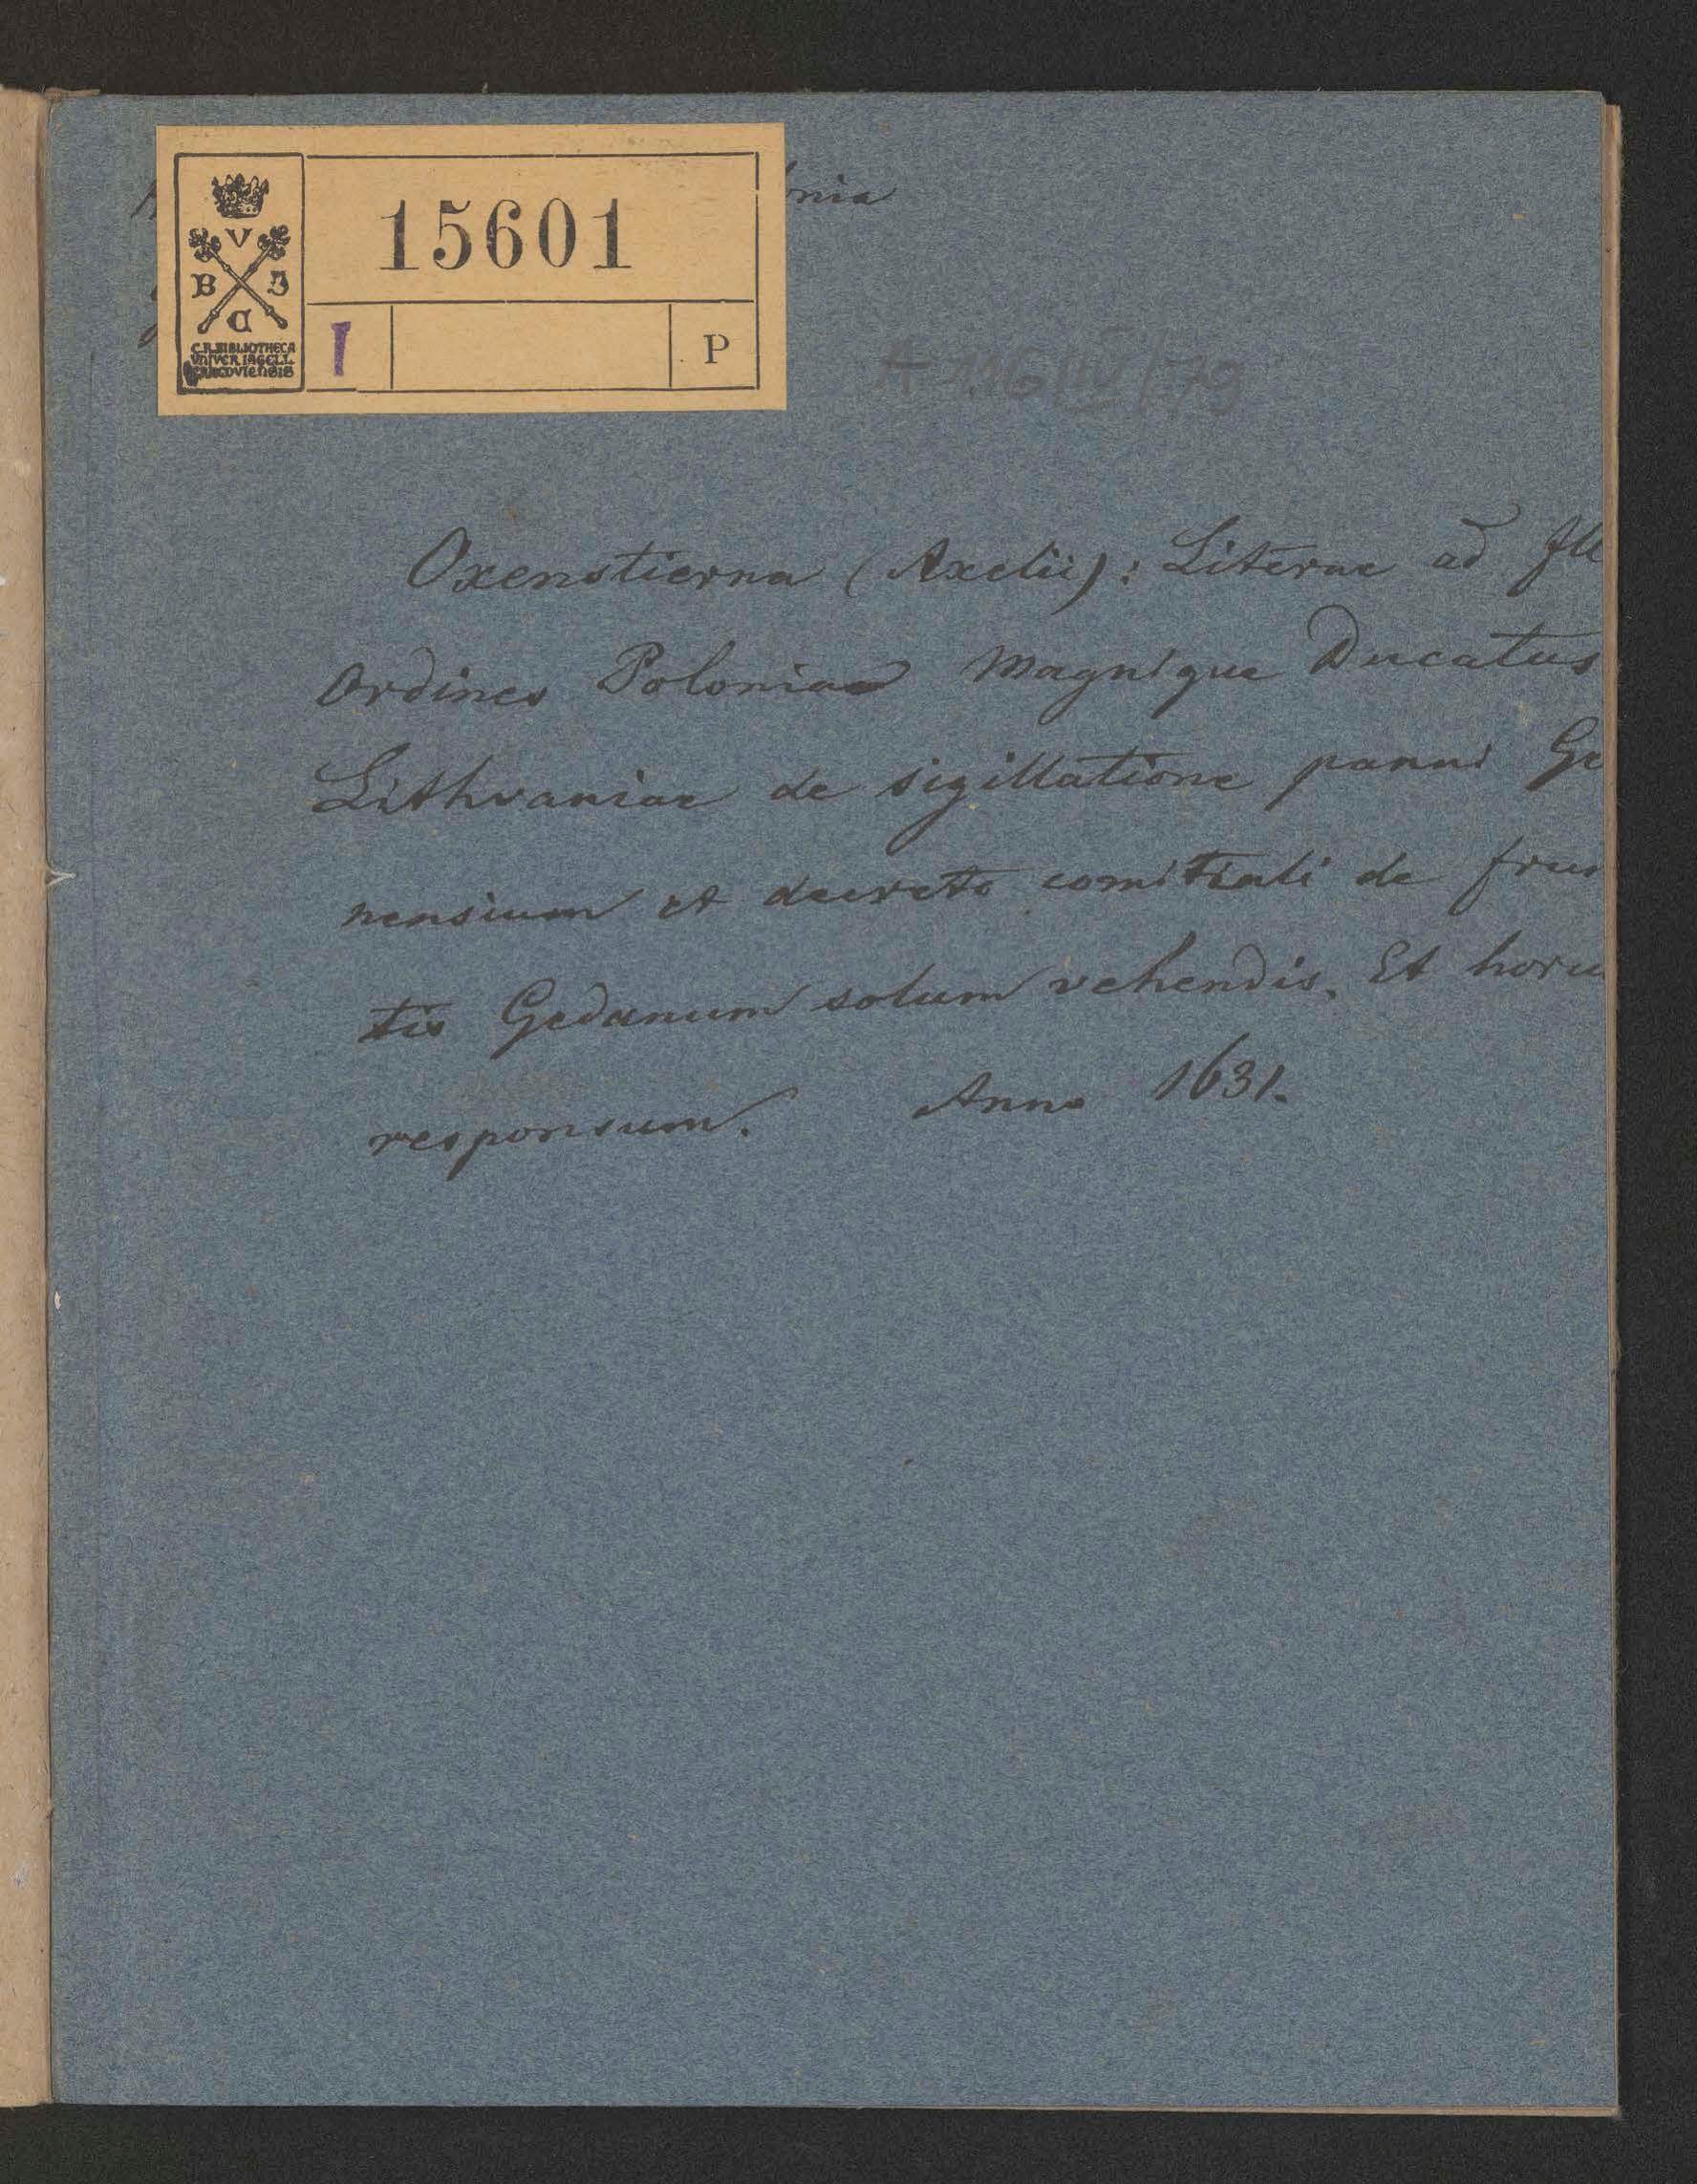 15601
V
B J
C
C.R.BIBLIOTHECA
VNIVER IAGELL
CRACOVIENSIS
I
P
nia
Oxenstierna (Axelii): Literae ad Ill
Ordines Poloniae Magnique Ducatus
Lithvaniae de sigillatione panni Ge
nensium et decreto comitiali de frum
tis Gedanum solum vehendis. Et horu
responsum. Anno 1631.